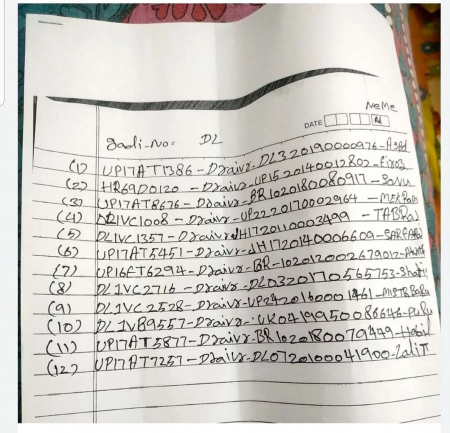 NeMe
DATE
Gadi-No- DL
(1) UP17AT1386-Draivr-DL320190000976-Asad
(2) HR69D0120-Draivr-UP1520140012802-firoz
(3) UP17AT8676-Draivr-BR1020180080917-Sonu
(4) DL1VC1008-Draivr-UP2220170002964-
(5) DL1VC1357-Draivr JH1720110003499-TABRaj
(6) UP17AT5451-Draivr-JH1720140006609-SARFARAJ
(7) UP16FT6294-Draivr-BR-10201200267 9012-
(8) DL1VC2716-Draivr-DL0320170565753-
(9) DL1VC2528-Draivr-UP2420160001461-
(10) DL1VB9557-Draivr-UK0419950086646-
(11) UP17AT5877-Draivr-BR1020180079449-Habil
(12) UP17AT7257-Draivr-DL0720100041900-LaliT